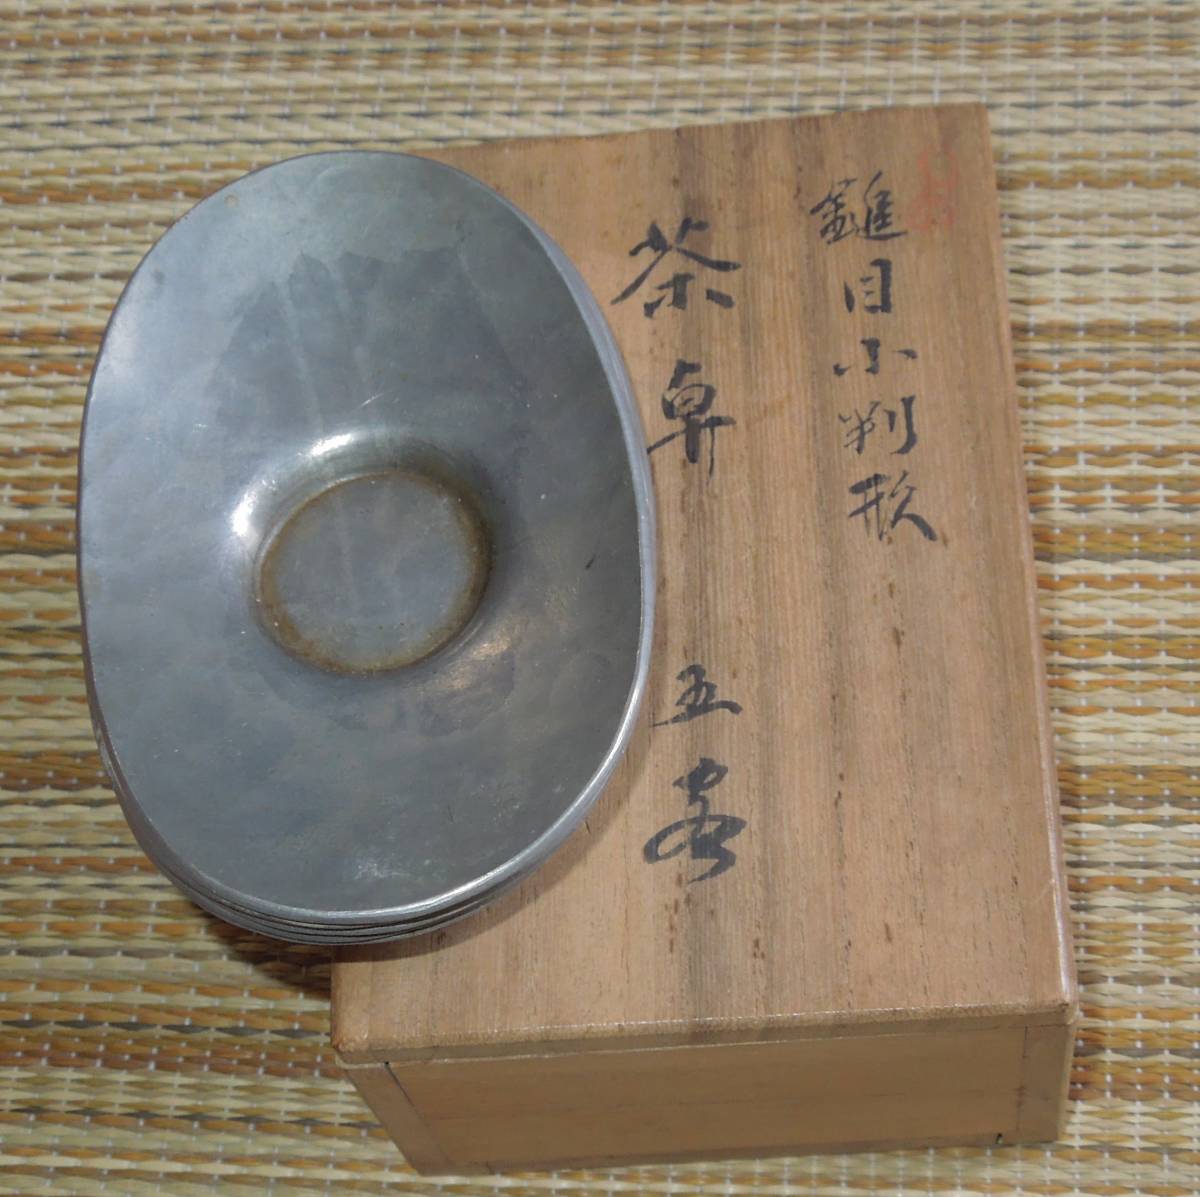 鎚目小判形
茶卓 五客